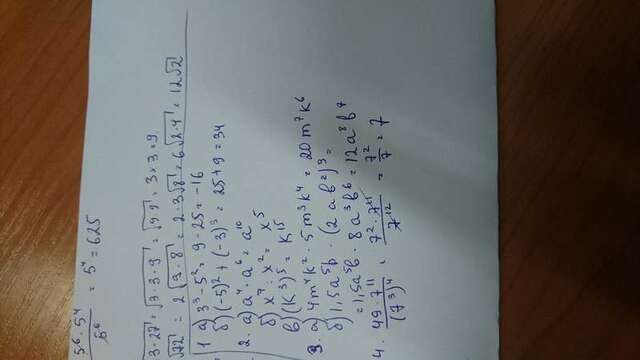 5⁶ · 5⁴ / 5⁶ = 5⁴ = 625
√3·27 = √3·3·9 = √9·9 = 3×3=9
√72 = 2√9·8 = 2·3√8 = 6√2·4 = 12√2
1 а) 3³ - 5² = 9 - 25 = -16
б) (-5)² + (-3)³ = 25+9 = 34
2. а) a⁴ · a⁶ = a¹⁰
б) x⁷ : x² = x⁵
в) (K³)⁵ = K¹⁵
3. а) 4m⁴k² · 5m³k⁴ = 20m⁷k⁶
б) 1,5a⁵b · (2ab²)³ =
= 1,5a⁵b · 8a³b⁶ = 12a⁸b⁷
4. 49·7¹¹ / (7³)⁴ = 7²·7¹¹ / 7¹² = 7²/7 = 7